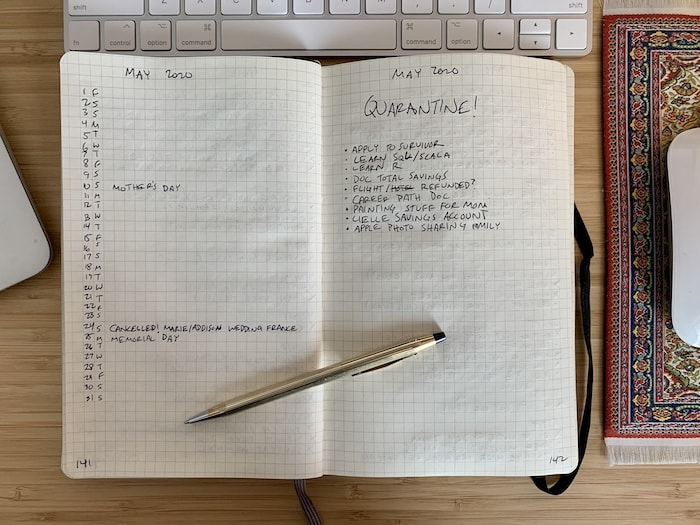 shift
shift
fn
control
option
command
command
option
control
shift
MAY 2020
1 F
2 S
3 S
4 M
5 T
6 W
7 T
8 F
9 S
10 S MOTHER'S DAY
11 M
12 T
13 W
14 T
15 F
16 S
17 S
18 M
19 T
20 W
21 T
22 F
23 S
24 S CANCELLED! MARIE/ADDISON WEDDING FRANCE
25 M MEMORIAL DAY
26 T
27 W
28 T
29 F
30 S
31 S
141
MAY 2020
QUARANTINE!
• APPLY TO SURVIVOR
• LEARN SQL/SCALA
• LEARN R
• DOC TOTAL SAVINGS
• FLIGHT/HOTEL REFUNDED?
• CAREER PATH DOC
• PAINTING STUFF FOR MOM
• LIELLE SAVINGS ACCOUNT
• APPLE PHOTO SHARING FAMILY
142